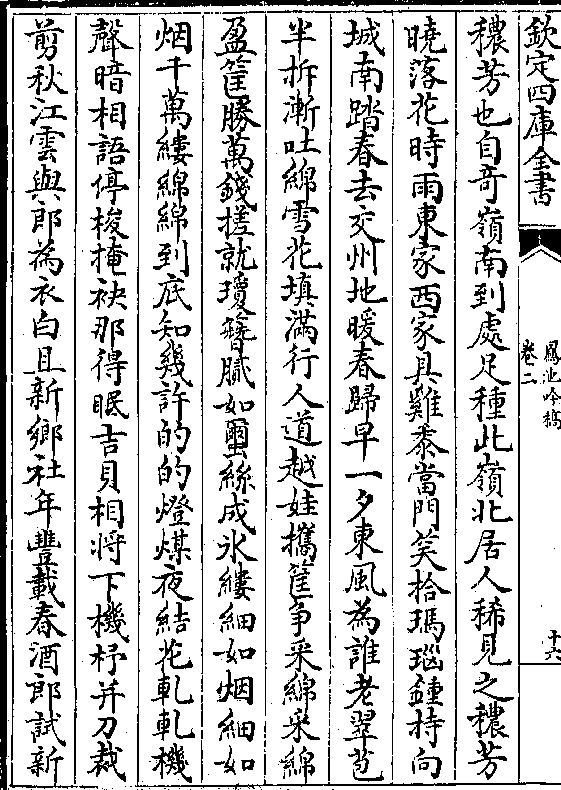 欽定四庫全書
鳳池吟稿
卷二
十六
穠芳也自竒嶺南到處足種此嶺北居人稀見之穠芳
曉落花時雨東家西家具雞黍當門笑拾瑪瑙鍾持向
城南踏春去交州地暖春歸早一夕東風為誰老翠苞
半拆漸吐綿雪花填滿行人道越娃攜筐争采綿采綿
盈筐勝萬錢搓就瓊簪膩如璽絲成氷縷細如烟細如
烟千萬縷綿綿到底知幾許的的燈煤夜結花軋軋機
聲暗相語停梭掩袂那得眠吉貝相將下機杼并刀裁
剪秋江雲與郎為衣白且新鄉社年豐載春酒郎試新